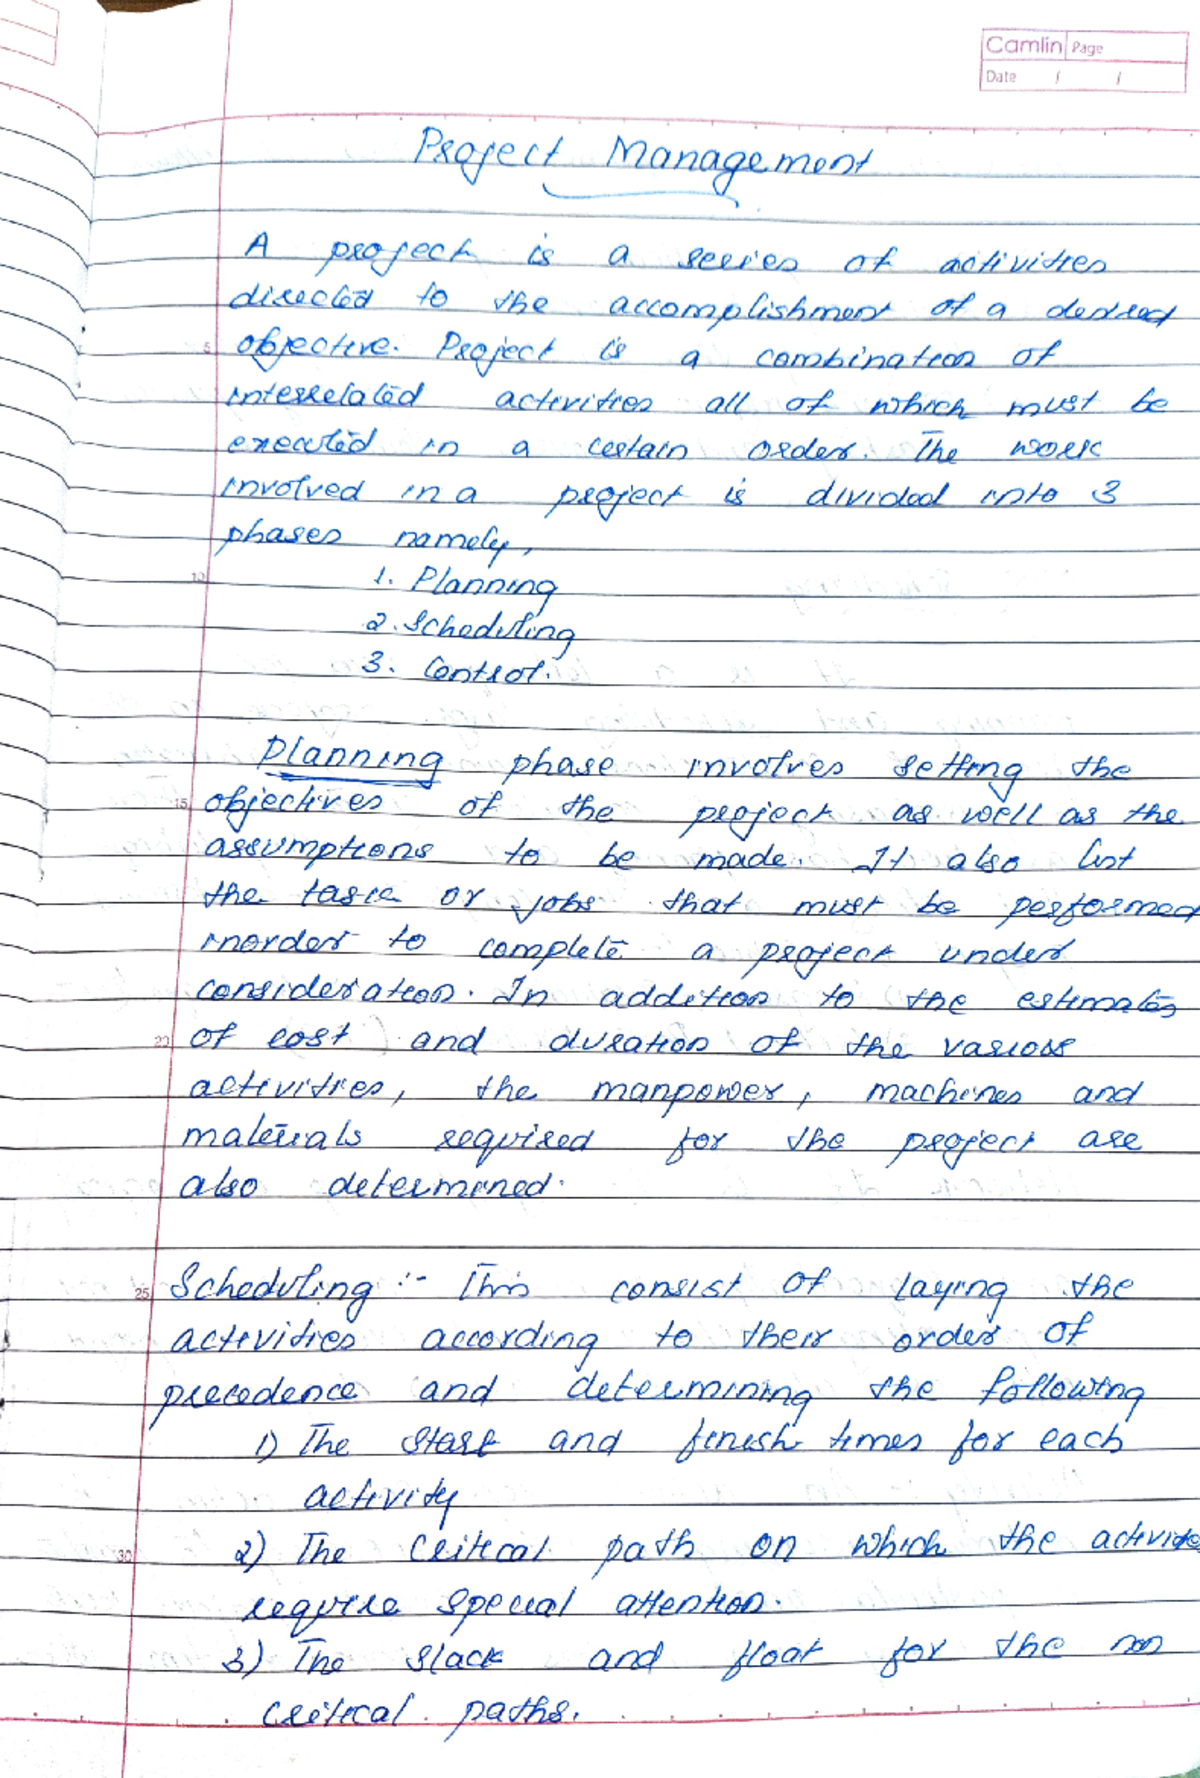 Camlin Page
Date / /
Project Management
A project is a series of activities
directed to the accomplishment of a desired
5
objective. Project is a combination of
interrelated activities all of which must be
executed in a certain order. The work
involved in a project is divided into 3
phases namely,
10
1. Planning
2. Scheduling
3. Control.
Planning phase involves setting the
15
objectives of the project as well as the
assumptions to be made. It also list
the tasks or jobs that must be performed
inorder to complete a project under
consideration. In addition to the estimates
20
of cost and duration of the various
activities, the manpower, machines and
materials required for the project are
also determined.
25
Scheduling :- This consist of laying the
activities according to their order of
precedence and determining the following
1) The start and finish times for each
activity
30
2) The critical path on which the
require special attention.
3) The slack and float for the non
critical paths.